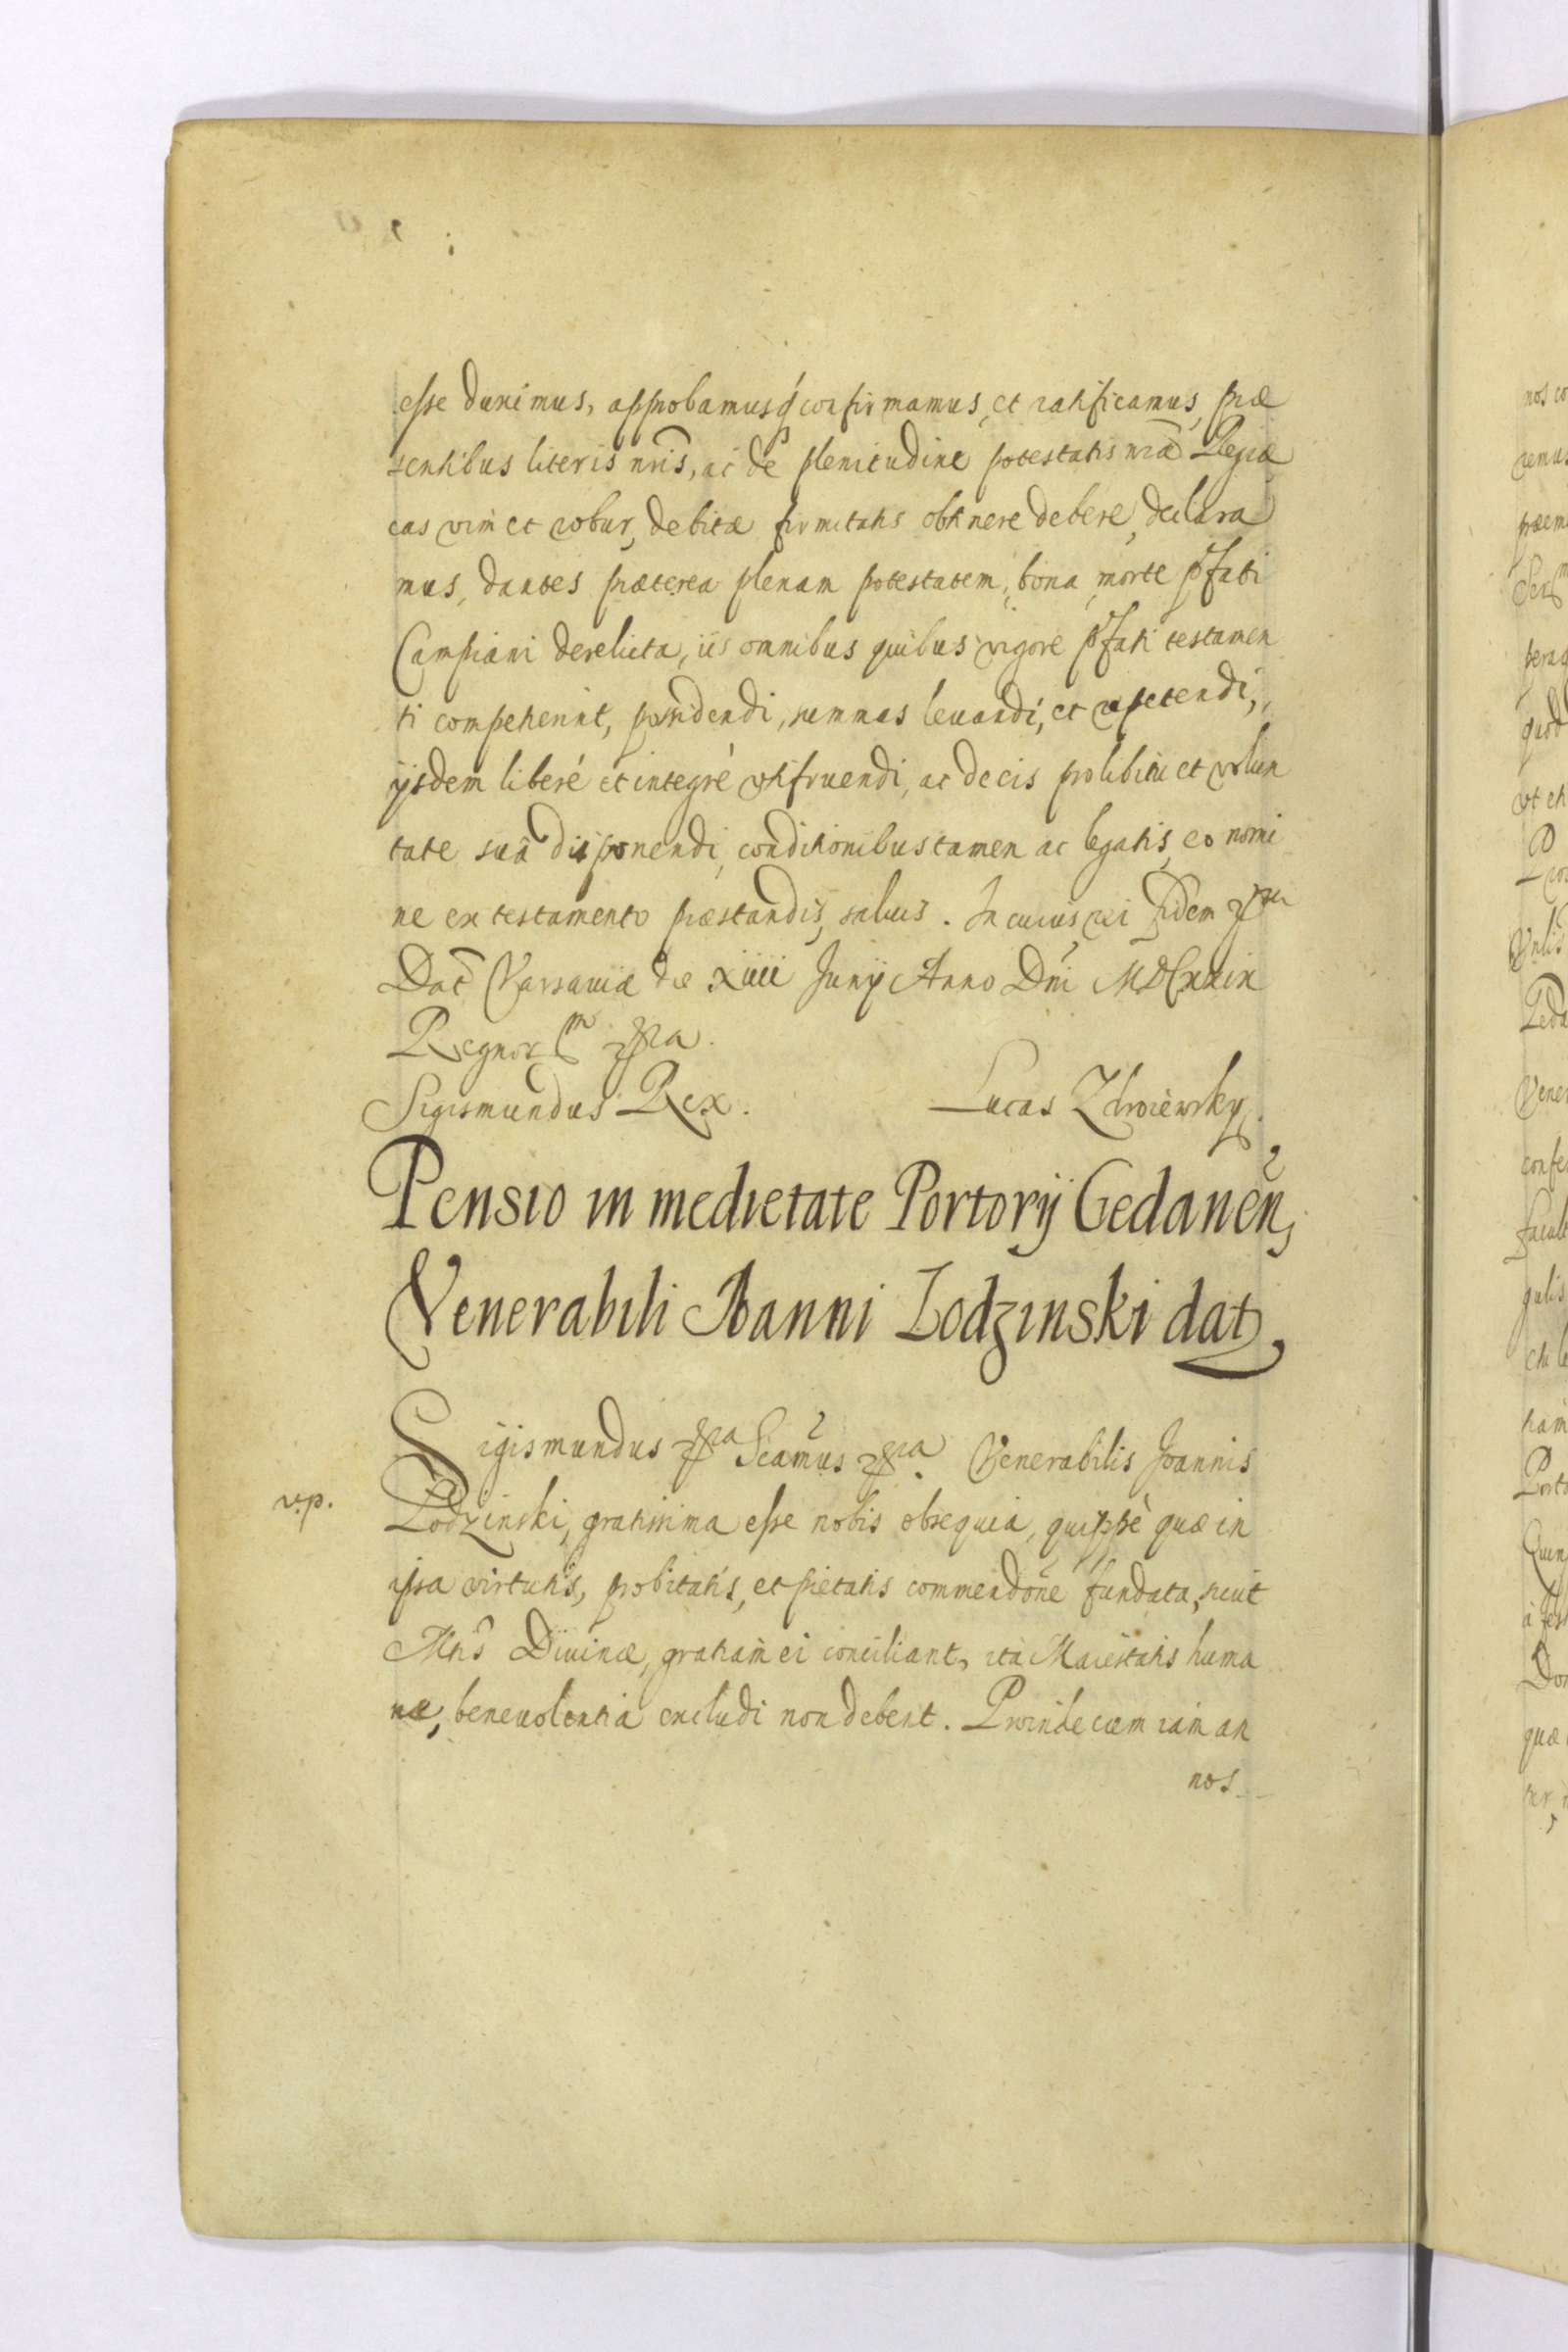 esse duximus, approbamusq́ confirmamus, et ratificamus, præ
sentibus literis nr̃is, ac de plenitudine potestatis nr̃æ Regiæ
eas vim et robur, debitæ firmitatis obtinere debere, declara
mus, dantes præterea plenam potestatem, bona, morte p̃fati
Campiani derelicta, iis omnibus quibus vigore p̃fati testamen
ti competierint, possidendi, summas leuandi, et repetendi,
ijsdem liberé et integré vtifruendi, ac de eis pro libitu et volun
tate suâ disponendi, conditionibus tamen ac legatis, eo nomi
ne ex testamento præstandis, saluis. In cuius rei fidem
Dat̃ Varsauiæ die xiiii Junij Anno Dn̄i MDCxxix
Regnor m̃ pra.
Sigismundus Rex. Lucas
Pensio in medietate Portorij Gedanen̄,
Venerabili Ioanni Lodzinski dat,
Sigismundus pra Scam̃us pra. Venerabilis Joannis
v.p.
Lodzinski, gratissima esse nobis obsequia, quippè quæ in
ipsa virtutis, probitatis, et pietatis commendõne fundata, sicut
Mtĩs Diuinæ, gratiam ei conciliant, ita Maiestatis huma
næ, beneuolentiâ excludi non debent. Proinde cum iam an
nos